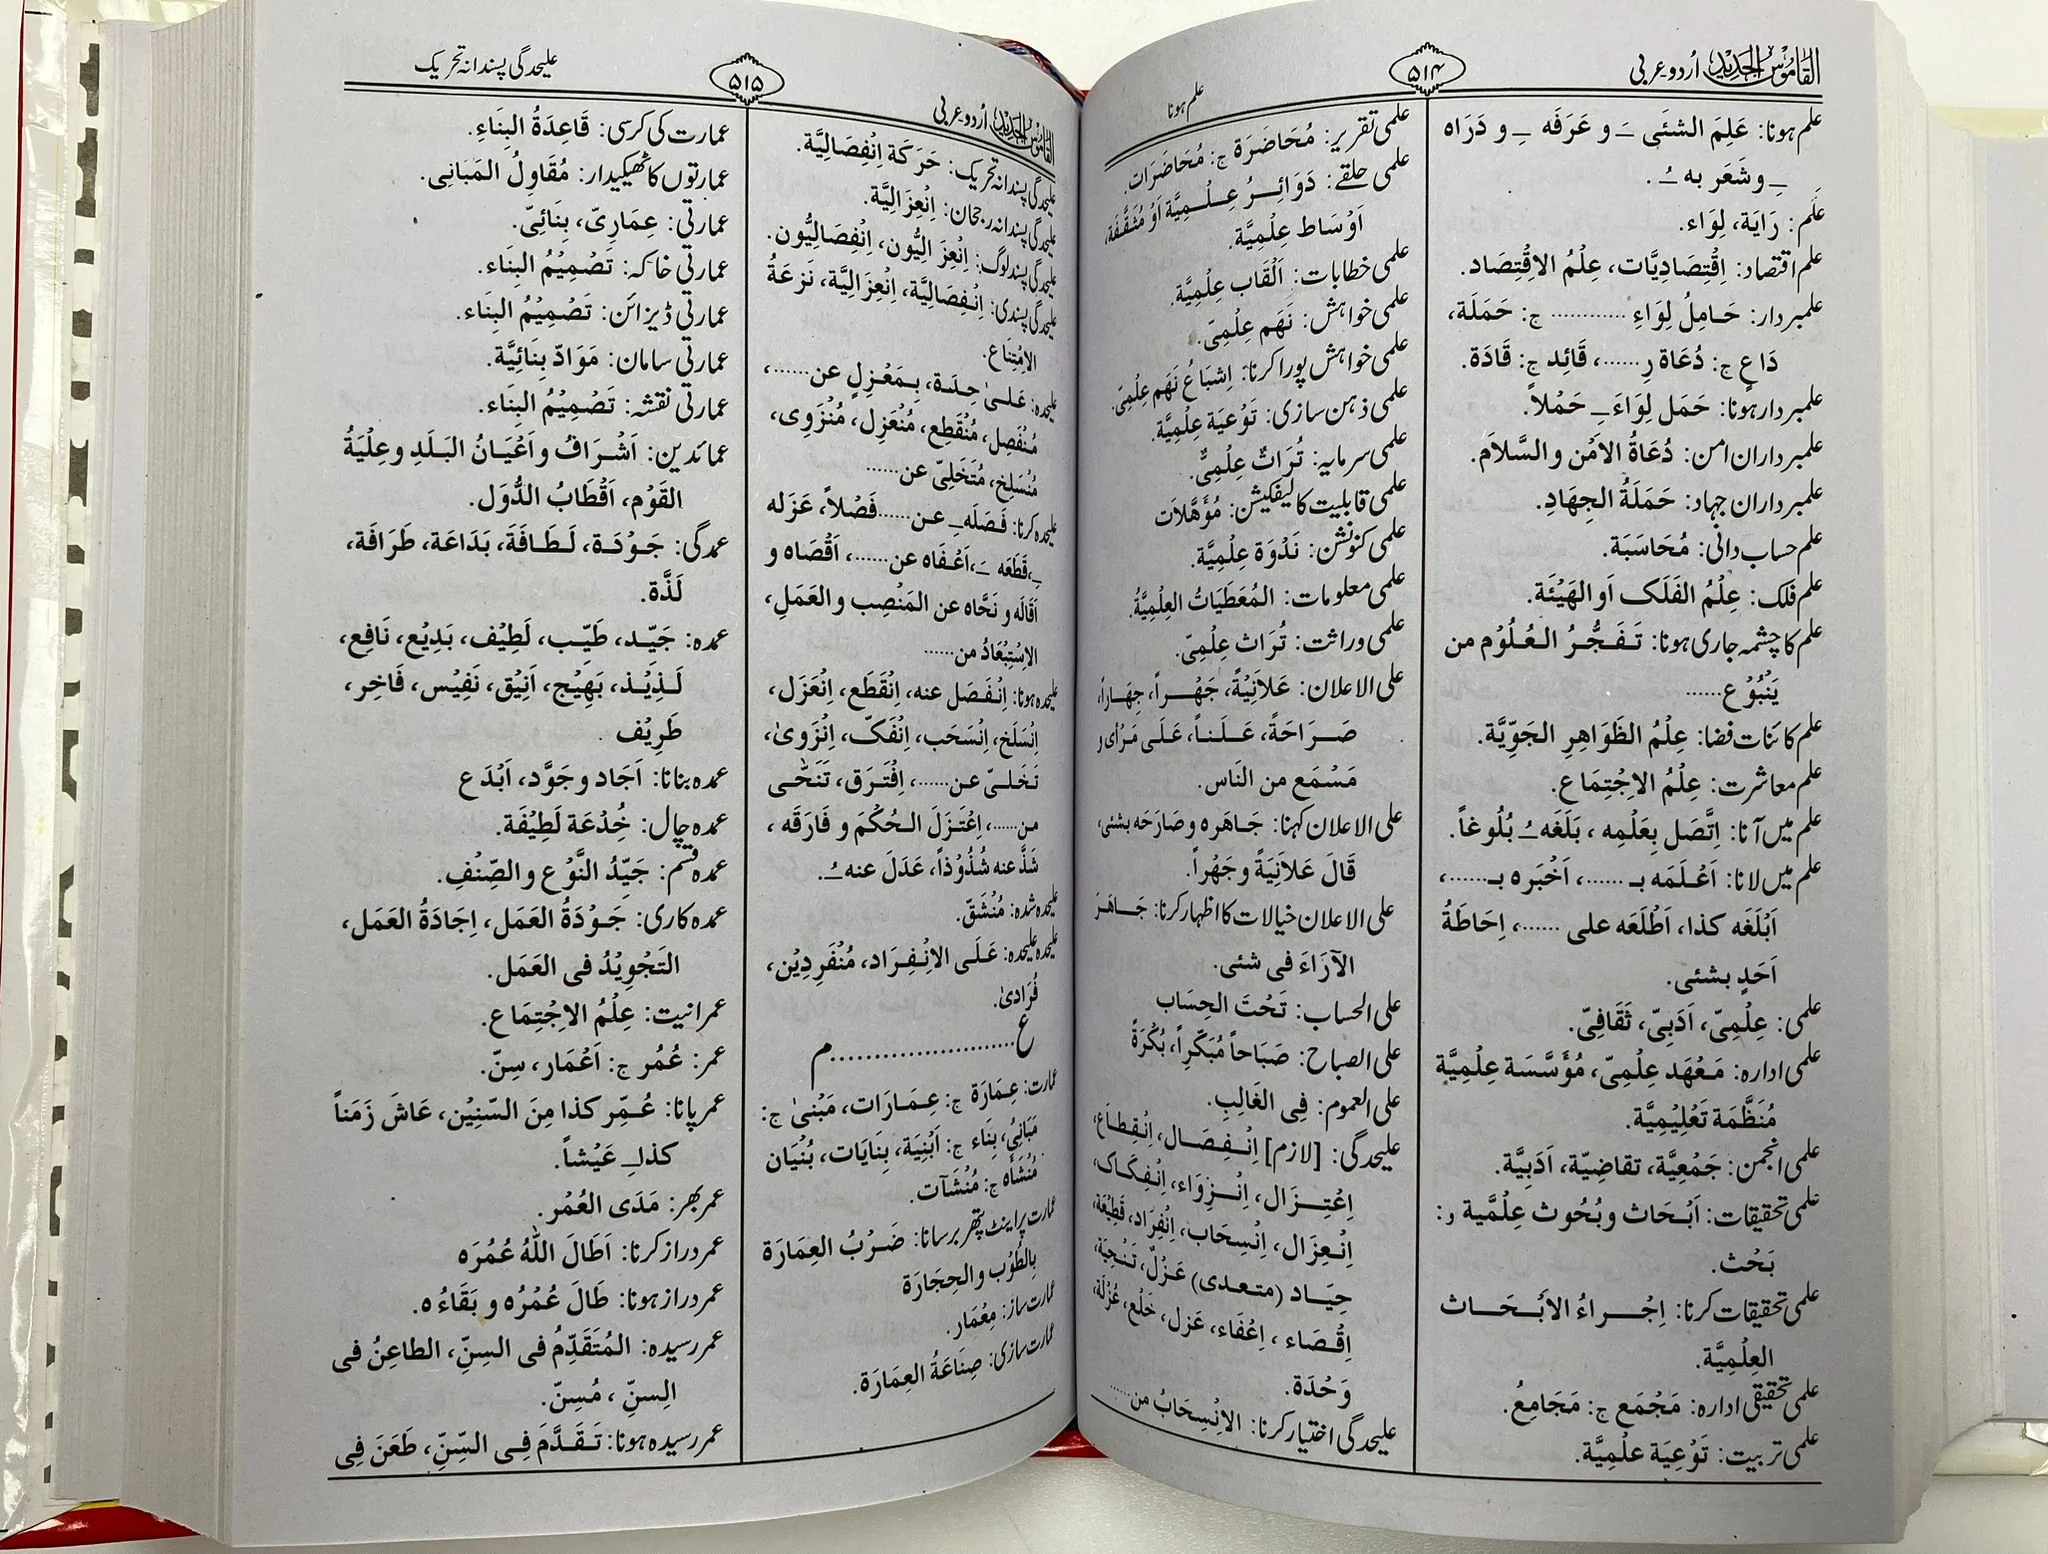 القاموس الجدید اُردو۔عربی
۵۱۴
علم ہونا
علم ہونا: عَلِمَ الشئی ـَ و عَرَفَه ـِ و دَرَاه
ـِ وشَعَر به ـُ .
عَلَم: رَايَة، لِوَاء.
علم اقتصاد: اِقْتِصَادِيَّات، عِلْمُ الاِقْتِصَاد.
علمبردار: حَامِلُ لِوَاءِ ............ ج: حَمَلَة،
دَاعٍ ج: دُعَاة رِ......، قَائِد ج: قَادَة.
علمبردار ہونا: حَمَل لِوَاءَ ـِ حَمْلاً.
علمبرداران امن: دُعَاةُ الاَمْن والسَّلاَم.
علمبرداران جہاد: حَمَلَةُ الجِهَادِ.
علم حساب دانی: مُحَاسَبَة.
علم فلک: عِلْمُ الفَلَک اَو الهَيْئَة.
علم کا چشمہ جاری ہونا: تَفَجُّرُ العُلُوْم من
يَنْبُوْع......
علم کائنات فضا: عِلْمُ الظَوَاهِرِ الجَوِّيَّة.
علم معاشرت: عِلْمُ الاِجْتِمَاع.
علم میں آنا: اِتَّصَل بِعَلْمِه ، بَلَغَه ـُ بُلُوغاً.
علم میں لانا: اَعْلَمَه بـ ......، اَخْبَرَه بـ......،
اَبْلَغَه کذا، اَطْلَعَه علی ......، اِحَاطَةُ
اَحَدٍ بشئی.
علمی: عِلْمِیّ، اَدَبِیّ، ثَقَافِیّ.
علمی ادارہ: مَعْهَد عِلْمِیّ، مُؤَسَّسَة عِلْمِيَّة
مُنَظَّمَة تَعْلِيْمِيَّة.
علمی انجمن: جَمْعِيَّة، تقاضِيّة، اَدَبِيَّة.
علمی تحقیقات: اَبْحَاث وبُحُوث عِلْمِيَّة و:
بَحْث.
علمی تحقیقات کرنا: اِجْرَاءُ الاَبْحَاث
العِلْمِيَّة.
علمی تحقیقی ادارہ: مَجْمَع ج: مَجَامِعُ.
علمی تربیت: تَوْعِيَة عِلْمِيَّة.
علمی تقریر: مُحَاضَرَة ج: مُحَاضَرَات.
علمی حلقے: دَوَائِرُ عِلْمِيَّة اَوْ مُثَقَّفَة،
اَوْسَاط عِلْمِيَّة.
علمی خطابات: اَلْقَاب عِلْمِيَّة.
علمی خواہش: نَهَم عِلْمِیّ.
علمی خواہش پورا کرنا: اِشبَاعُ نَهَم عِلْمِیّ.
علمی ذہن سازی: تَوْعِيَة عِلْمِيَّة.
علمی سرمایہ: تُرَاثٌ عِلْمِیٌّ.
علمی قابلیت کا لیفکیشن: مُؤَهَّلاَت
علمی کنونشن: نَدْوَة عِلْمِيَّة.
علمی معلومات: المُعْطَيَاتُ العِلْمِيَّةُ.
علمی وراثت: تُرَاث عِلْمِیّ.
علی الاعلان: عَلاَنِيْةً، جَهْراً، جِهَاراً،
صَرَاحَةً، عَلَناً، عَلَی مَرْأی و
مَسْمَع من النَاس.
علی الاعلان کہنا: جَاهَره وصَارَحَه بشئی،
قَالَ عَلاَنِيَةً وجَهْراً.
علی الاعلان خیالات کا اظہار کرنا: جَاهَرَ
الآرَاءَ فی شئی.
علی الحساب: تَحْتَ الحِسَاب
علی الصباح: صَبَاحاً مُبَكِّراً، بُكْرَةً
علی العموم: فِی الغَالِبِ.
علیحدگی: [لازم] اِنْفِصَال، اِنْقِطَاع،
اِعْتِزَال، اِنْزِوَاء، اِنْفِكَاک،
اِنْعِزَال، اِنْسِحَاب، اِنْفِرَاد، قَطِيْعَة،
حِيَاد (متعدی) عَزْلٌ، تَنْحِيَة،
اِقْصَاء ، اِعْفَاء، عَزل، خَلْع، عُزْلَة،
وَحْدَة.
علیحدگی اختیار کرنا: الاِنْسِحَابُ من......
علیحدگی پسندانہ تحریک
۵۱۵
القاموس الجدید اُردو۔عربی
علیحدگی پسندانہ تحریک: حَرَكَة اِنْفِصَالِيَّة.
علیحدگی پسندانہ رجحان: اِنْعِزَالِيَّة.
علیحدگی پسند لوگ: اِنْعِزَالِيُّون، اِنْفِصَالِيُّون.
علیحدگی پسندی: اِنْفِصَالِيَّة، اِنْعِزَالِيَّة، نَزعَةُ
الاِمْتِنَاع.
علیحدہ: عَلیٰ حِدَة، بِمَعْزِلٍ عن......،
مُنْفَصِل، مُنْقَطِع، مُنْعَزِل، مُنْزَوِی،
مُنْسَلِخ، مُتَخَلِیّ عن......
علیحدہ کرنا: فَصَلَه ـِ عن......فَصْلاً، عَزَله
ـِ، قَطَعَه ـَ ،اَعْفَاه عن......، اَقْصَاه و
اَقَالَه و نَحَّاه عن المَنْصِب و العَمَلِ،
الاِسْتِبْعَادُ من......
علیحدہ ہونا: اِنْفَصَل عنه، اِنْقَطَع، اِنْعَزَل،
اِنْسَلَخ، اِنْسَحَب، اِنْفَکّ، اِنْزَویٰ،
تَخَلیّ عن......، اِفْتَرَق، تَنَحّٰی
من......، اِعْتَزَلَ الحُكْمَ و فَارَقَه ،
شَذَّ عنه شُذُوْذاً، عَدَلَ عنه ـُ .
علیحدہ شدہ: مُنْشَقّ.
علیحدہ علیحدہ: عَلَی الاِنْفِرَاد، مُنْفَرِدِيْن،
فُرَادیٰ.
ع........................م
عمارت: عِمَارَة ج: عِمَارَات، مَبْنیٰ ج:
مَبَانِیُ، بِنَاء ج: اَبْنِيَة، بِنَايَات، بُنْيَان
مُنْشَأَه ج: مُنْشَآت.
عمارت پر اینٹ پتھر برسانا: ضَرْبُ العِمَارَة
بِالطُوْب و الحِجَارَة
عمارت ساز: مِعْمَار.
عمارت سازی: صِنَاعَةُ العِمَارَة.
عمارت کی کرسی: قَاعِدَةُ البِنَاءِ.
عمارتوں کا ٹھیکیدار: مُقَاوِلُ المَبَانِی.
عمارتی: عِمَارِیّ، بِنَائِیّ.
عمارتی خاکہ: تَصْمِيْمُ البِنَاء.
عمارتی ڈیزائن: تَصْمِيْمُ البِنَاء.
عمارتی سامان: مَوَادّ بِنَائِيَّة.
عمارتی نقشہ: تَصْمِيْمُ البِنَاء.
عمائدین: اَشْرَافُ و اَعْيَانُ البَلَدِ و عِلْيَةُ
القَوْم، اَقْطَابُ الدُّوَل.
عمدگی: جَوْدَة، لَطَافَة، بَدَاعَة، طَرَافَة،
لَذَّة.
عمدہ: جَيِّد، طَيِّب، لَطِيْف، بَدِيْع، نَافِع،
لَذِيْذ، بَهِيْج، اَنِيْق، نَفِيْس، فَاخِر،
طَرِيْف .
عمدہ بنانا: اَجَاد و جَوَّد، اَبْدَع
عمدہ چال: خُدْعَة لَطِيْفَة.
عمدہ قسم: جَيِّدُ النَّوْع و الصِّنْفِ.
عمدہ کاری: جَوْدَةُ العَمَل، اِجَادَةُ العَمَل،
التَجْوِيْدُ فی العَمَل.
عمرانیت: عِلْمُ الاِجْتِمَاع.
عمر: عُمُر ج: اَعْمَار، سِنّ.
عمر پانا: عُمِّر کذا مِنَ السّنِيْن، عَاشَ زَمَناً
کذا ـِ عَيْشاً.
عمر بھر: مَدَی العُمْر.
عمر دراز کرنا: اَطَالَ اللّٰهُ عُمُرَه
عمر دراز ہونا: طَالَ عُمْرُه و بَقَاءُه.
عمر رسیدہ: المُتَقَدِّمُ فی السِنِّ، الطاعِنُ فی
السِنِّ ، مُسِنّ.
عمر رسیدہ ہونا: تَقَدَّمَ فِی السِّنِّ، طَعَنَ فِی